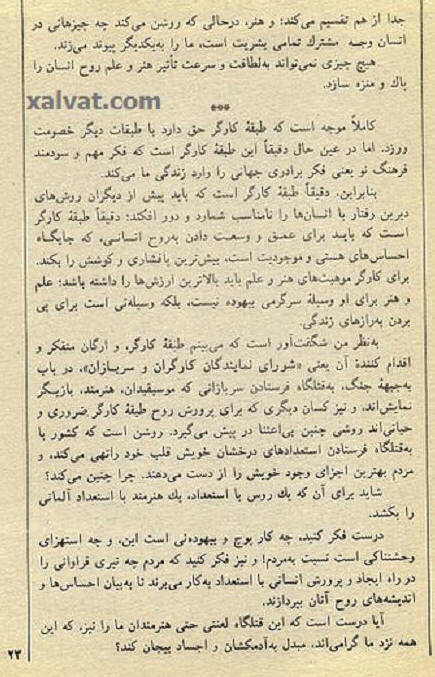 جدا از هم تقسیم می‌کند؛ و هنر، درحالی که روشن می‌کند چه چیزهائی در
انسان وجـه مشترك تمامی بشریت است، ما را به‌یکدیگر پیوند می‌زند.
هیچ چیزی نمی‌تواند به‌لطافت و سرعت تأثیر هنر و علم روح انسان را
پاك و منزه سازد.
xalvat.com
***
کاملاً موجه است که طبقهٔ کارگر حق دارد با طبقات دیگر خصومت
ورزد. اما در عین حال دقیقاً این طبقهٔ کارگر است که فکر مهم و سودمند
فرهنگ نو یعنی فکر برادری جهانی را وارد زندگی ما می‌کند.
بنابراین، دقیقاً طبقهٔ کارگر است که باید پیش از دیگران روش‌های
دیرین رفتار با انسان‌ها را نامناسب شمارد و دور افکند؛ دقیقاً طبقهٔ کارگر
است که باید برای عمـق و وسعـت دادن به‌روح انسانـی، که جایگـاه
احساس‌های هستی و موجودیت است، بیش‌ترین پافشاری و کوشش را بکند.
برای کارگر موهبت‌های هنر و علم باید بالاترین ارزش‌ها را داشته باشد؛ علم
و هنر برای او وسیلهٔ سرگرمی بیهوده نیست، بلکه وسیله‌ئی است برای پی
بردن به‌رازهای زندگی.
به‌نظر من شگفت‌آور است که می‌بینم طبقهٔ کارگر، و ارگان متفکر و
اقدام کنندهٔ آن یعنی «شورای نمایندگان کارگران و سربـازان»، در باب
به‌جبههٔ جنگ، به‌قتلگاه فرستادن سربازانی که موسیقیدان، هنرمند، بازیـگر
نمایش‌اند، و نیز کسان دیگری که برای پرورش روح طبقهٔ کارگر ضروری و
حیاتی‌اند روشی چنین بی‌اعتنا در پیش می‌گیرد. روشن است که کشور با
به‌قتلگاه فرستادن استعدادهای درخشان خویش قلب خود راتهی می‌کند، و
مردم بهترین اجزای وجود خویش را از دست می‌دهند. چرا چنین می‌کند؟
شاید برای آن که یك روس با استعداد، یك هنرمند با استعداد آلمانی
را بکشد.
درست فکر کنید، چه کار پوچ و بیهوده‌ئی است این، و چه استهزای
وحشتناکی است نسبت به‌مردم! و نیز فکر کنید که مردم چه نیری فراوانی را
در راه ایجاد و پرورش انسانی با استعداد به‌کار می‌برند تا به‌بیان احساس‌ها و
اندیشه‌های روح آنان بپردازند.
آیا درست است که این قتلگاه لعنتی حتی هنرمندان ما را نیز، که این
همه نزد ما گرامی‌اند، مبدل به‌آدمکشان و اجساد بیجان کند؟
۲۳